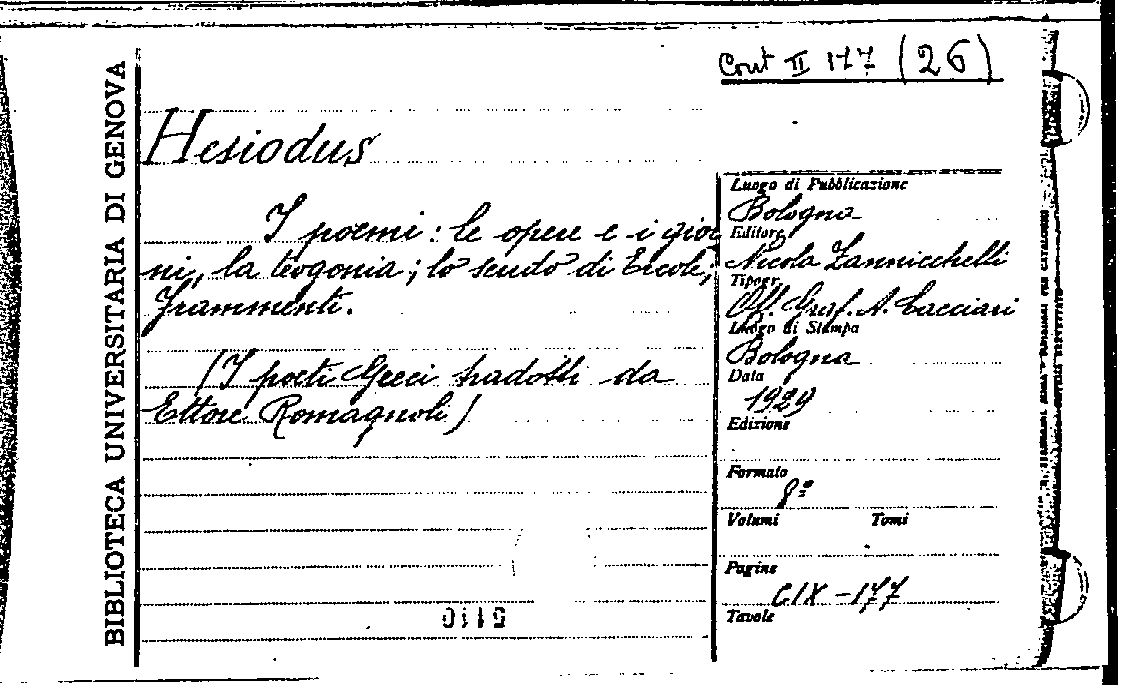 Cont II 177 (26)
BIBLIOTECA UNIVERSITARIA DI GENOVA
Hesiodus
I poemi: le opere e i gior
ni, la teogonia; lo scudo di Ercole;
Frammenti.
(I poeti Greci tradotti da
Ettore Romagnoli)
Luogo di Pubblicazione
Bologna
Editore
Nicola Zannicchelli
Tipogr.
Off. Graf. A. Cacciari
Luogo di Stampa
Bologna
Data
1929
Edizione
Formato
8º
Volumi Tomi
Pagine
CIX-177
Tavole
0115